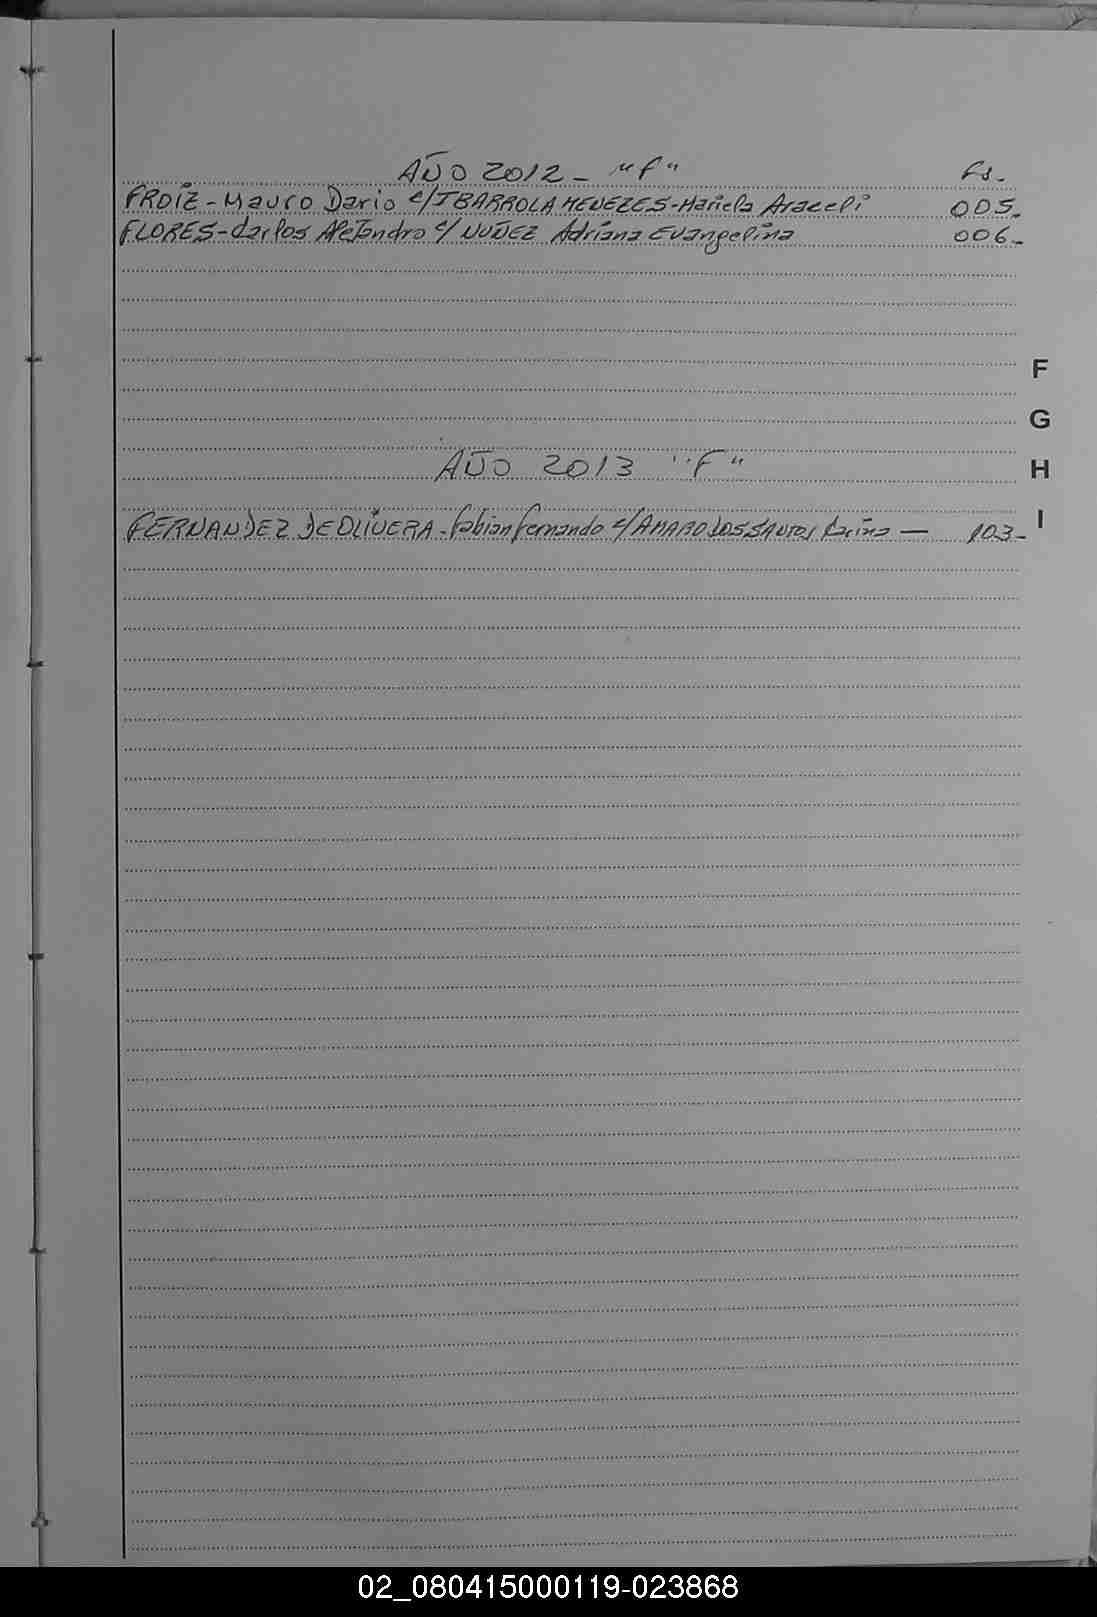 AÑO 2012 - "F" Fs.
FROIZ - Mauro Dario c/ IBARROLA MENEZES - Mariela Araceli 005.
FLORES - Carlos Alejandro c/ NUÑEZ Adriana Evangelina 006.-
F
G
AÑO 2013 "F"
H
FERNANDEZ DE OLIVERA - Fabian Fernando c/ AMARO DOS SANTOS Karina — 103-
I
02_080415000119-023868